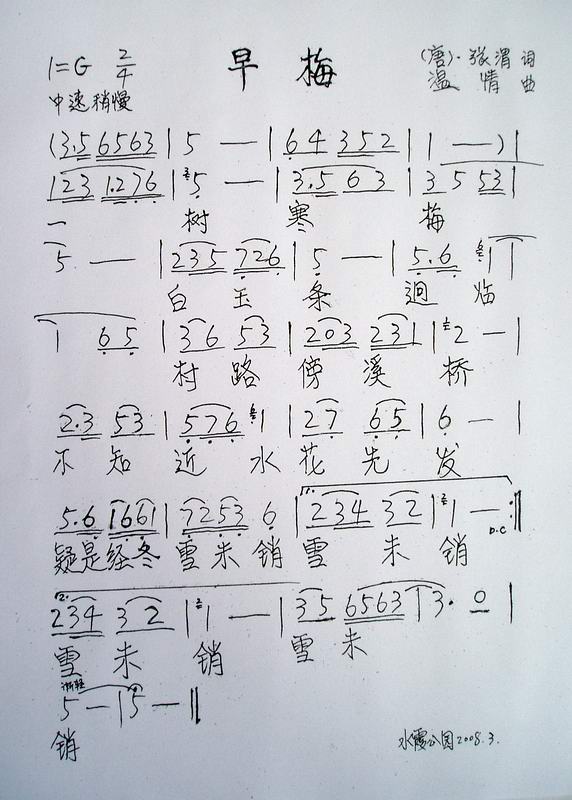 1=G 2/4 早 梅 (唐)·张渭 词
中速稍慢 温 情 曲
(3.5 6563 | 5 — | 64 352 | 1 — ) |
123 1.276 | 5 — | 3.5 63 | 3 5 53 |
一 树 寒 梅
5 — | 235 726 | 5 — | 5.6 1 |
白 玉 条 迥 临
1 65 | 36 53 | 203 231 | 2 — |
村 路 傍 溪 桥
2.3 53 | 576 1 | 27 65 | 6 — |
不 知 近 水 花 先 发
5.6 1661 | 7253 6 | 1. 234 32 | 1 — :‖
D.C
疑是经冬 雪未销 雪 未 销
2. 234 32 | 1 — | 35 6563 | 3. 0 |
雪 未 销 雪 未
渐轻
5 — | 5 — ‖
销
水霞公园 2008.3.